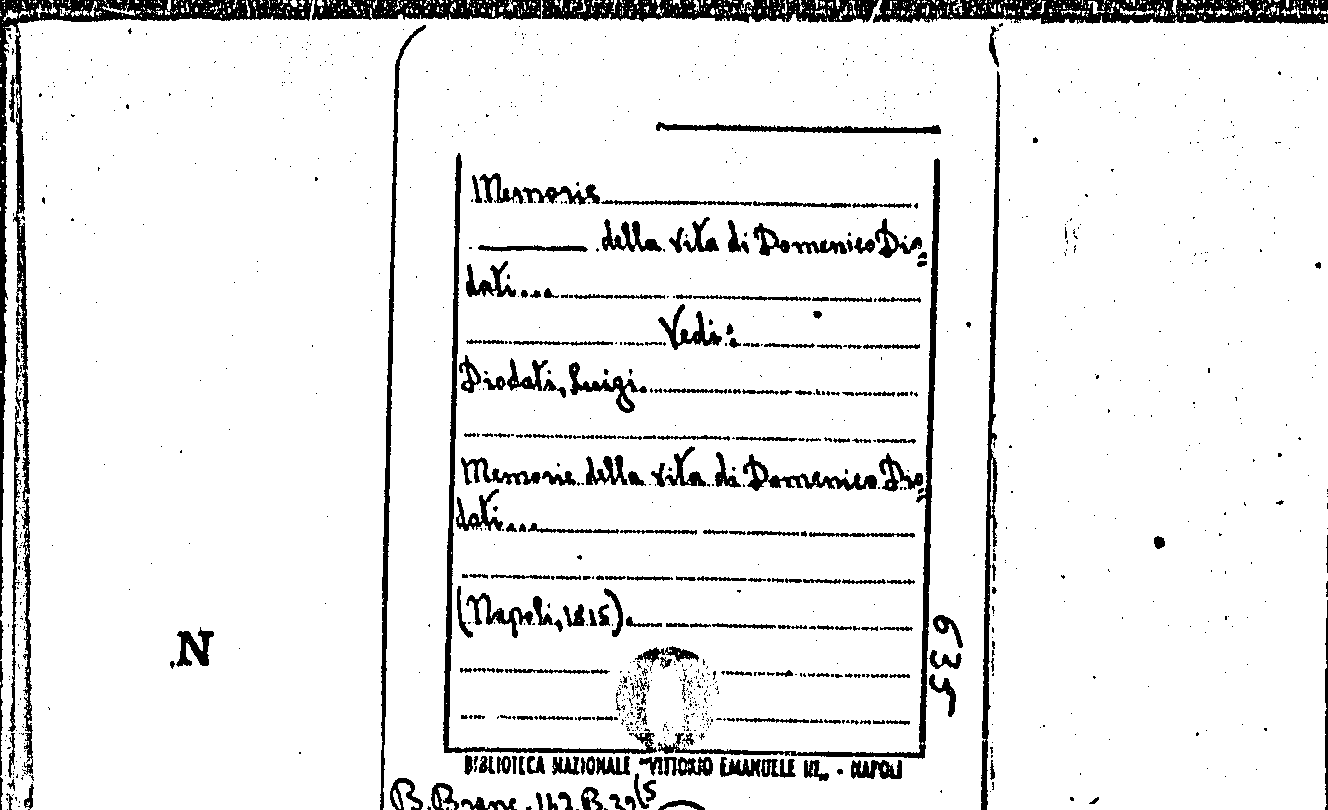 Memorie
della vita di Domenico Dio=
dati...
Vedi:
Diodati, Luigi.
Memorie della vita di Domenico Dio=
dati...
(Napoli, 1815).
635
N.
BIBLIOTECA NAZIONALE "VITTORIO EMANUELE III„ - NAPOLI
B. Branc. 142. B. 39(5